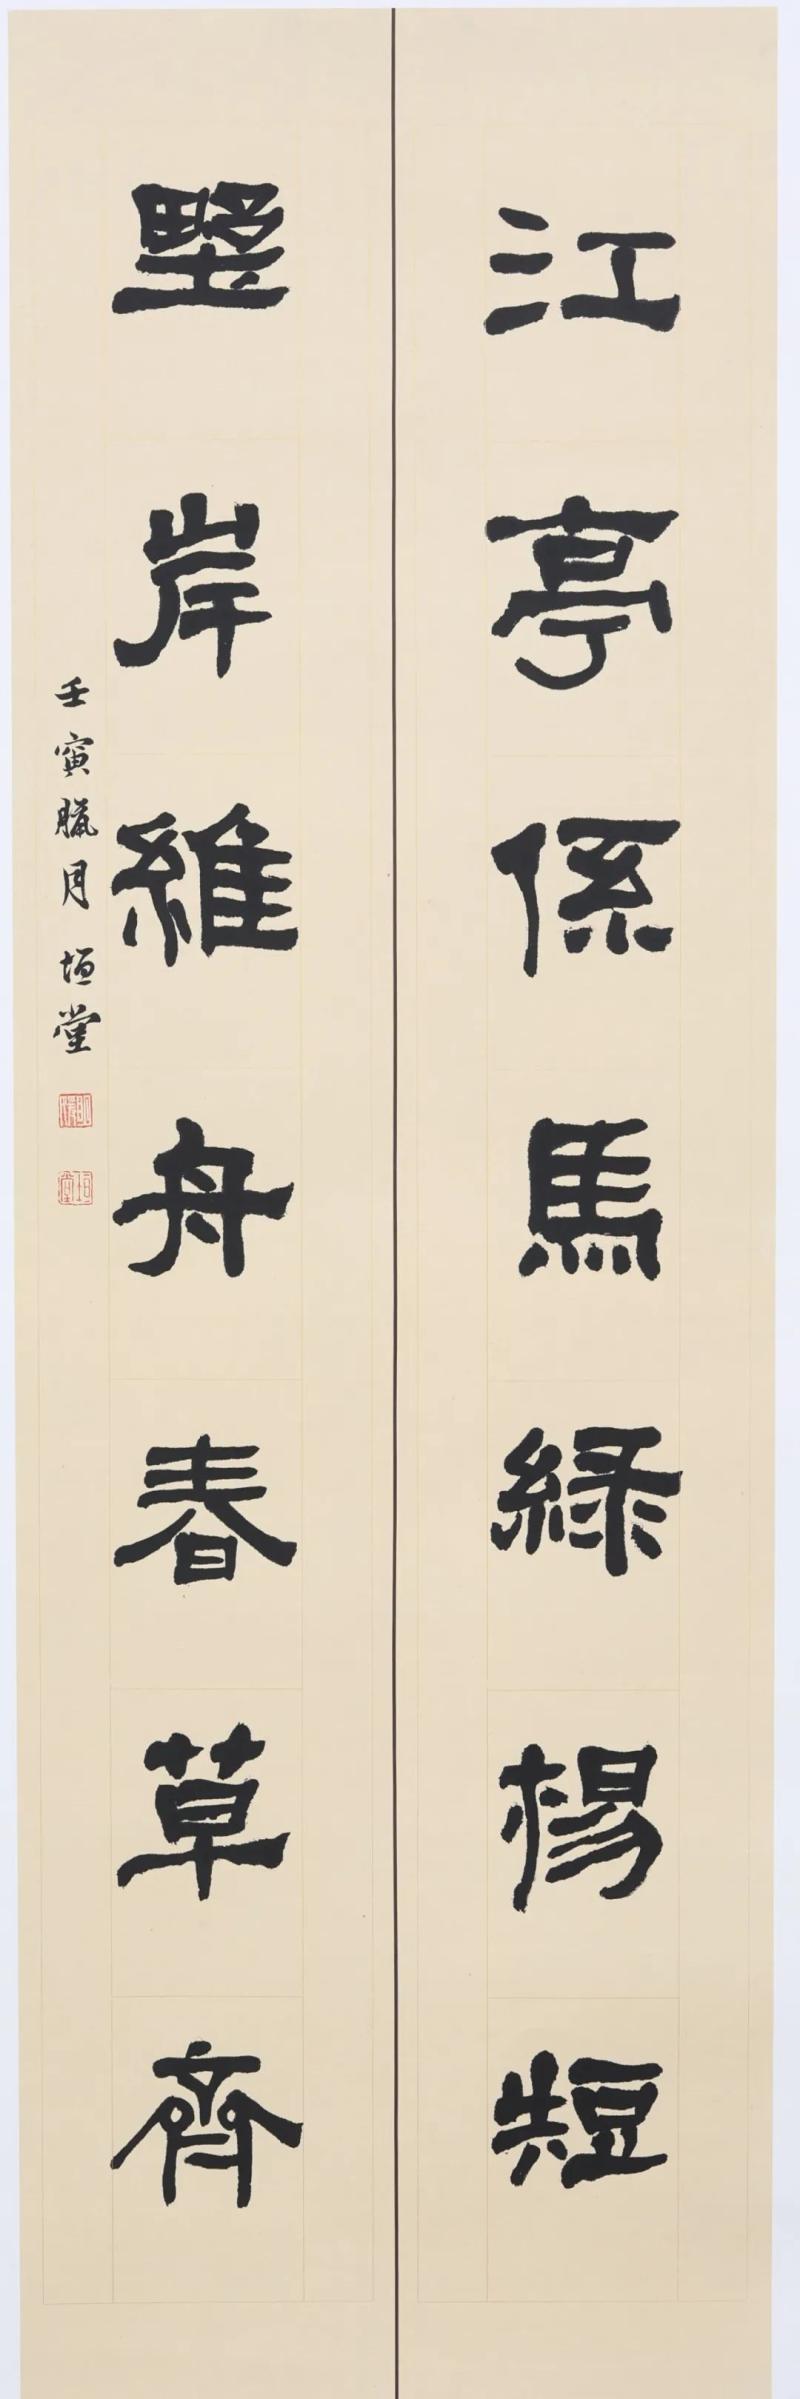 江亭係馬綠楊短
墅岸維舟春草齊
壬寅臘月垣堂
垣堂